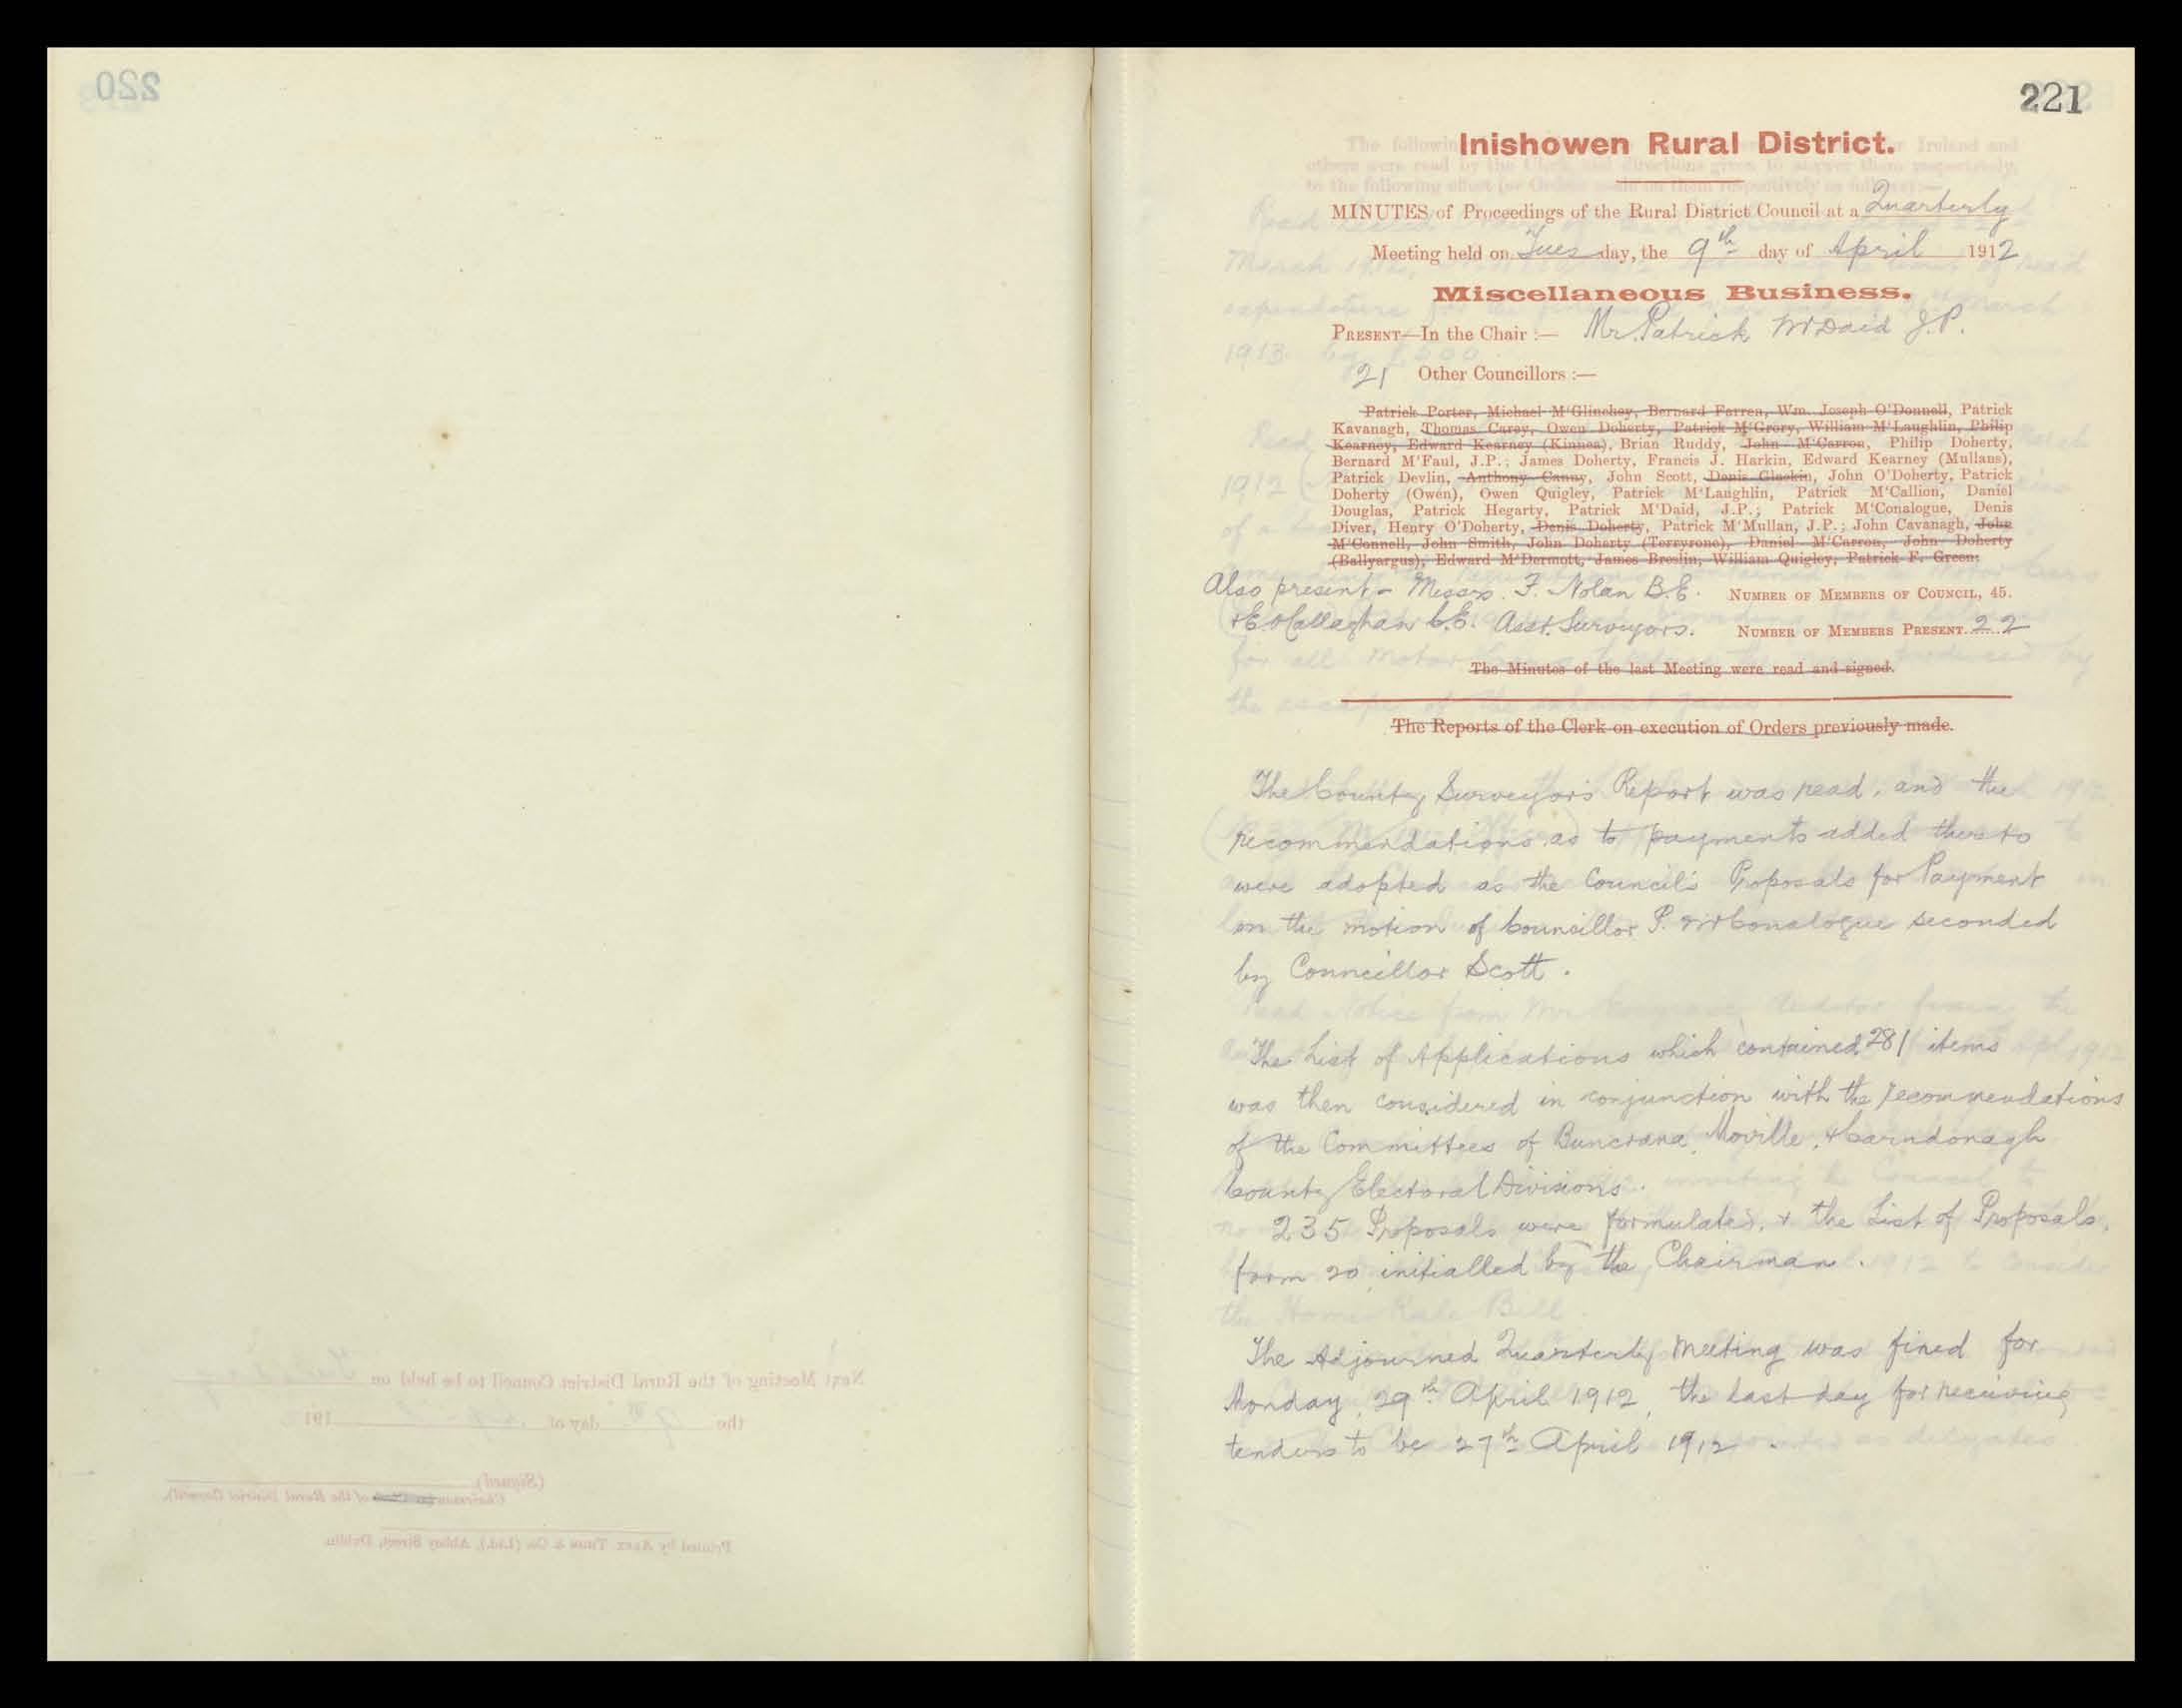 221
Inishowen Rural District.
MINUTES of Proceedings of the Rural District Council at a Quarterly
Meeting held on Tuesday, the 9th day of April 1912
Miscellaneous Business.
PRESENT—In the Chair :— Mr. Patrick McDaid J.P.
21 Other Councillors :—
Patrick Porter, Michael M'Glinchey, Bernard Farren, Wm. Joseph O'Donnell, Patrick
Kavanagh, Thomas Carey, Owen Doherty, Patrick M'Grory, William M'Laughlin, Philip
Kearney, Edward Kearney (Kinnea), Brian Ruddy, John M'Carron, Philip Doherty,
Bernard M'Faul, J.P.; James Doherty, Francis J. Harkin, Edward Kearney (Mullans),
Patrick Devlin, Anthony Canny, John Scott, Denis Glackin, John O'Doherty, Patrick
Doherty (Owen), Owen Quigley, Patrick M'Laughlin, Patrick M'Callion, Daniel
Douglas, Patrick Hegarty, Patrick M'Daid, J.P.; Patrick M'Conalogue, Denis
Diver, Henry O'Doherty, Denis Doherty, Patrick M'Mullan, J.P.; John Cavanagh, John
M'Connell, John Smith, John Doherty (Terryrone), Daniel M'Carron, John Doherty
(Ballyargus), Edward M'Dermott, James Breslin, William Quigley, Patrick F. Green.
Also present - Messrs. F. Nolan B.E. NUMBER OF MEMBERS OF COUNCIL, 45.
+ E. O'Callaghan C.E. Asst. Surveyors. NUMBER OF MEMBERS PRESENT 22
The Minutes of the last Meeting were read and signed.
The Reports of the Clerk on execution of Orders previously made.
The County Surveyor's Report was read, and the
recommendations as to payments added thereto
were adopted as the Council's Proposals for Payment
on the motion of Councillor P. McConalogue seconded
by Councillor Scott.
The List of Applications which contained 281 items
was then considered in conjunction with the recommendations
of the Committees of Buncrana, Moville, + Carndonagh
County Electoral Divisions.
235 Proposals were formulated, + the List of Proposals,
form 20, initialled by the Chairman.
The Adjourned Quarterly Meeting was fixed for
Monday, 29th April 1912, the last day for receiving
tenders to be 27th April 1912.